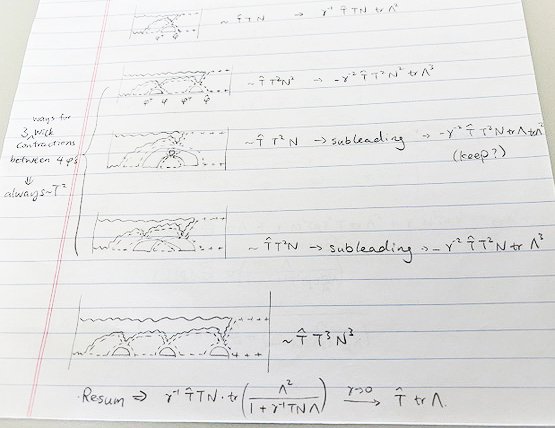 ~ T̂ T N → γ⁻¹ T̂ T N tr Λ²
φ φ
~ T̂ T²N² → -γ⁻² T̂ T²N² tr Λ³
φ φ φ φ
3 ways for
Wick
contractions
between 4 φ's
⇓
always ~ T²
~ T̂ T²N → subleading → -γ⁻² T̂ T²N tr Λ tr Λ²
(keep?)
~ T̂ T²N → subleading → -γ⁻² T̂ T²N tr Λ³
~ T̂ T³N³
Resum ⇒ γ⁻¹ T̂ T N · tr ( Λ² / (1 + γ⁻¹ T N Λ) ) γ→0 → T̂ tr Λ.